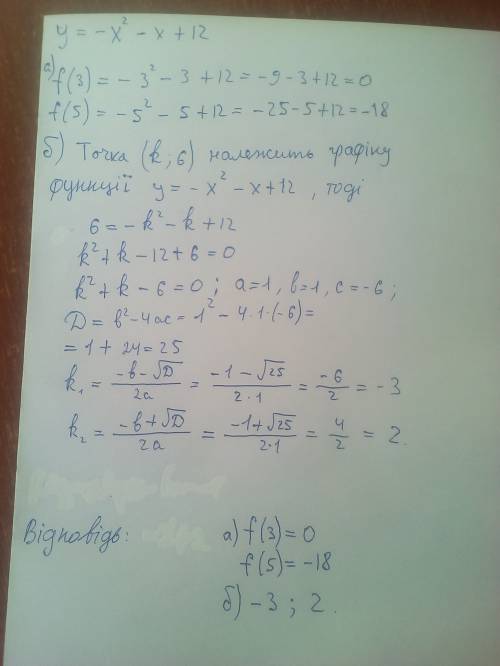 y = -x² - x + 12
а) f(3) = -3² - 3 + 12 = -9 - 3 + 12 = 0
f(5) = -5² - 5 + 12 = -25 - 5 + 12 = -18
б) Точка (k; 6) належить графіку
функції y = -x² - x + 12, тоді
6 = -k² - k + 12
k² + k - 12 + 6 = 0
k² + k - 6 = 0; a = 1, b = 1, c = -6;
D = b² - 4ac = 1² - 4·1·(-6) =
= 1 + 24 = 25
k₁ = (-b - √D)/2a = (-1 - √25)/2·1 = -6/2 = -3
k₂ = (-b + √D)/2a = (-1 + √25)/2·1 = 4/2 = 2.
Відповідь: а) f(3) = 0
f(5) = -18
б) -3; 2.